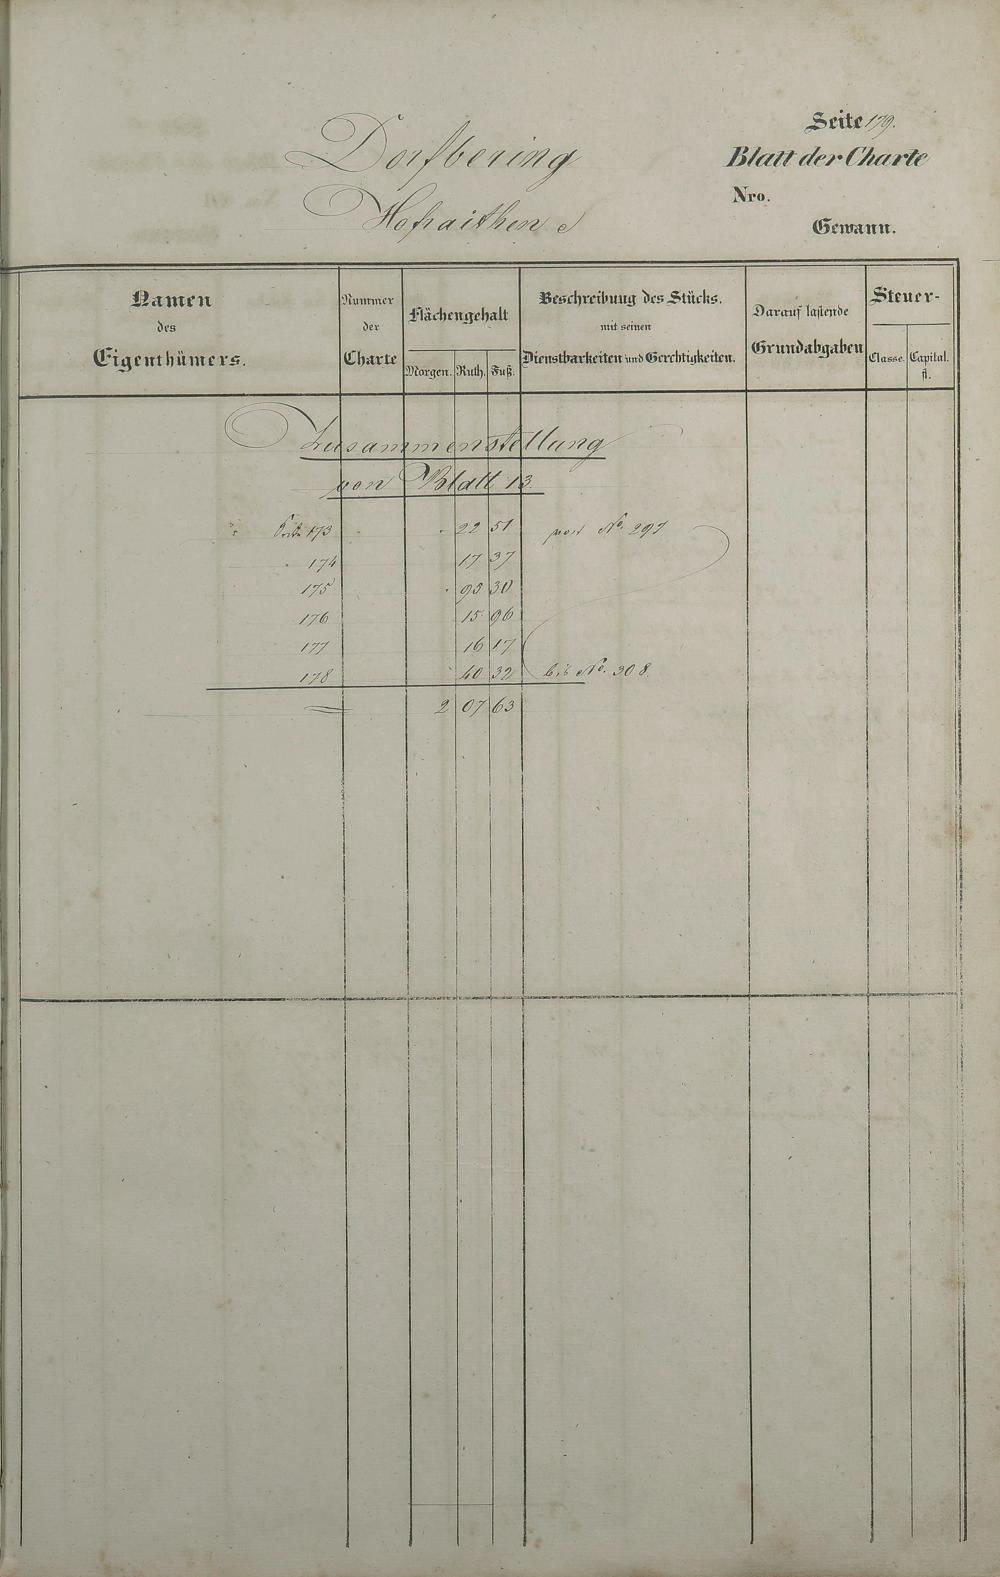 Seite 179.
Dorfbering
Blatt der Charte
Nro.
Hofraithen
Gewann.
Namen des Eigenthümers.
Nummer der Charte
Flächengehalt
Morgen. Ruth. Fuß.
Beschreibung des Stücks.
mit seinen
Dienstbarkeiten und Gerechtigkeiten.
Darauf lastende
Grundabgaben
Steuer-
Classe. Capital.
fl.
Zusammenstellung
von Blatt 13
173 22 51 von No. 297
174 17 37
175 93 30
176 15 96
177 16 17
178 40 32 bis No. 308
2 07 63